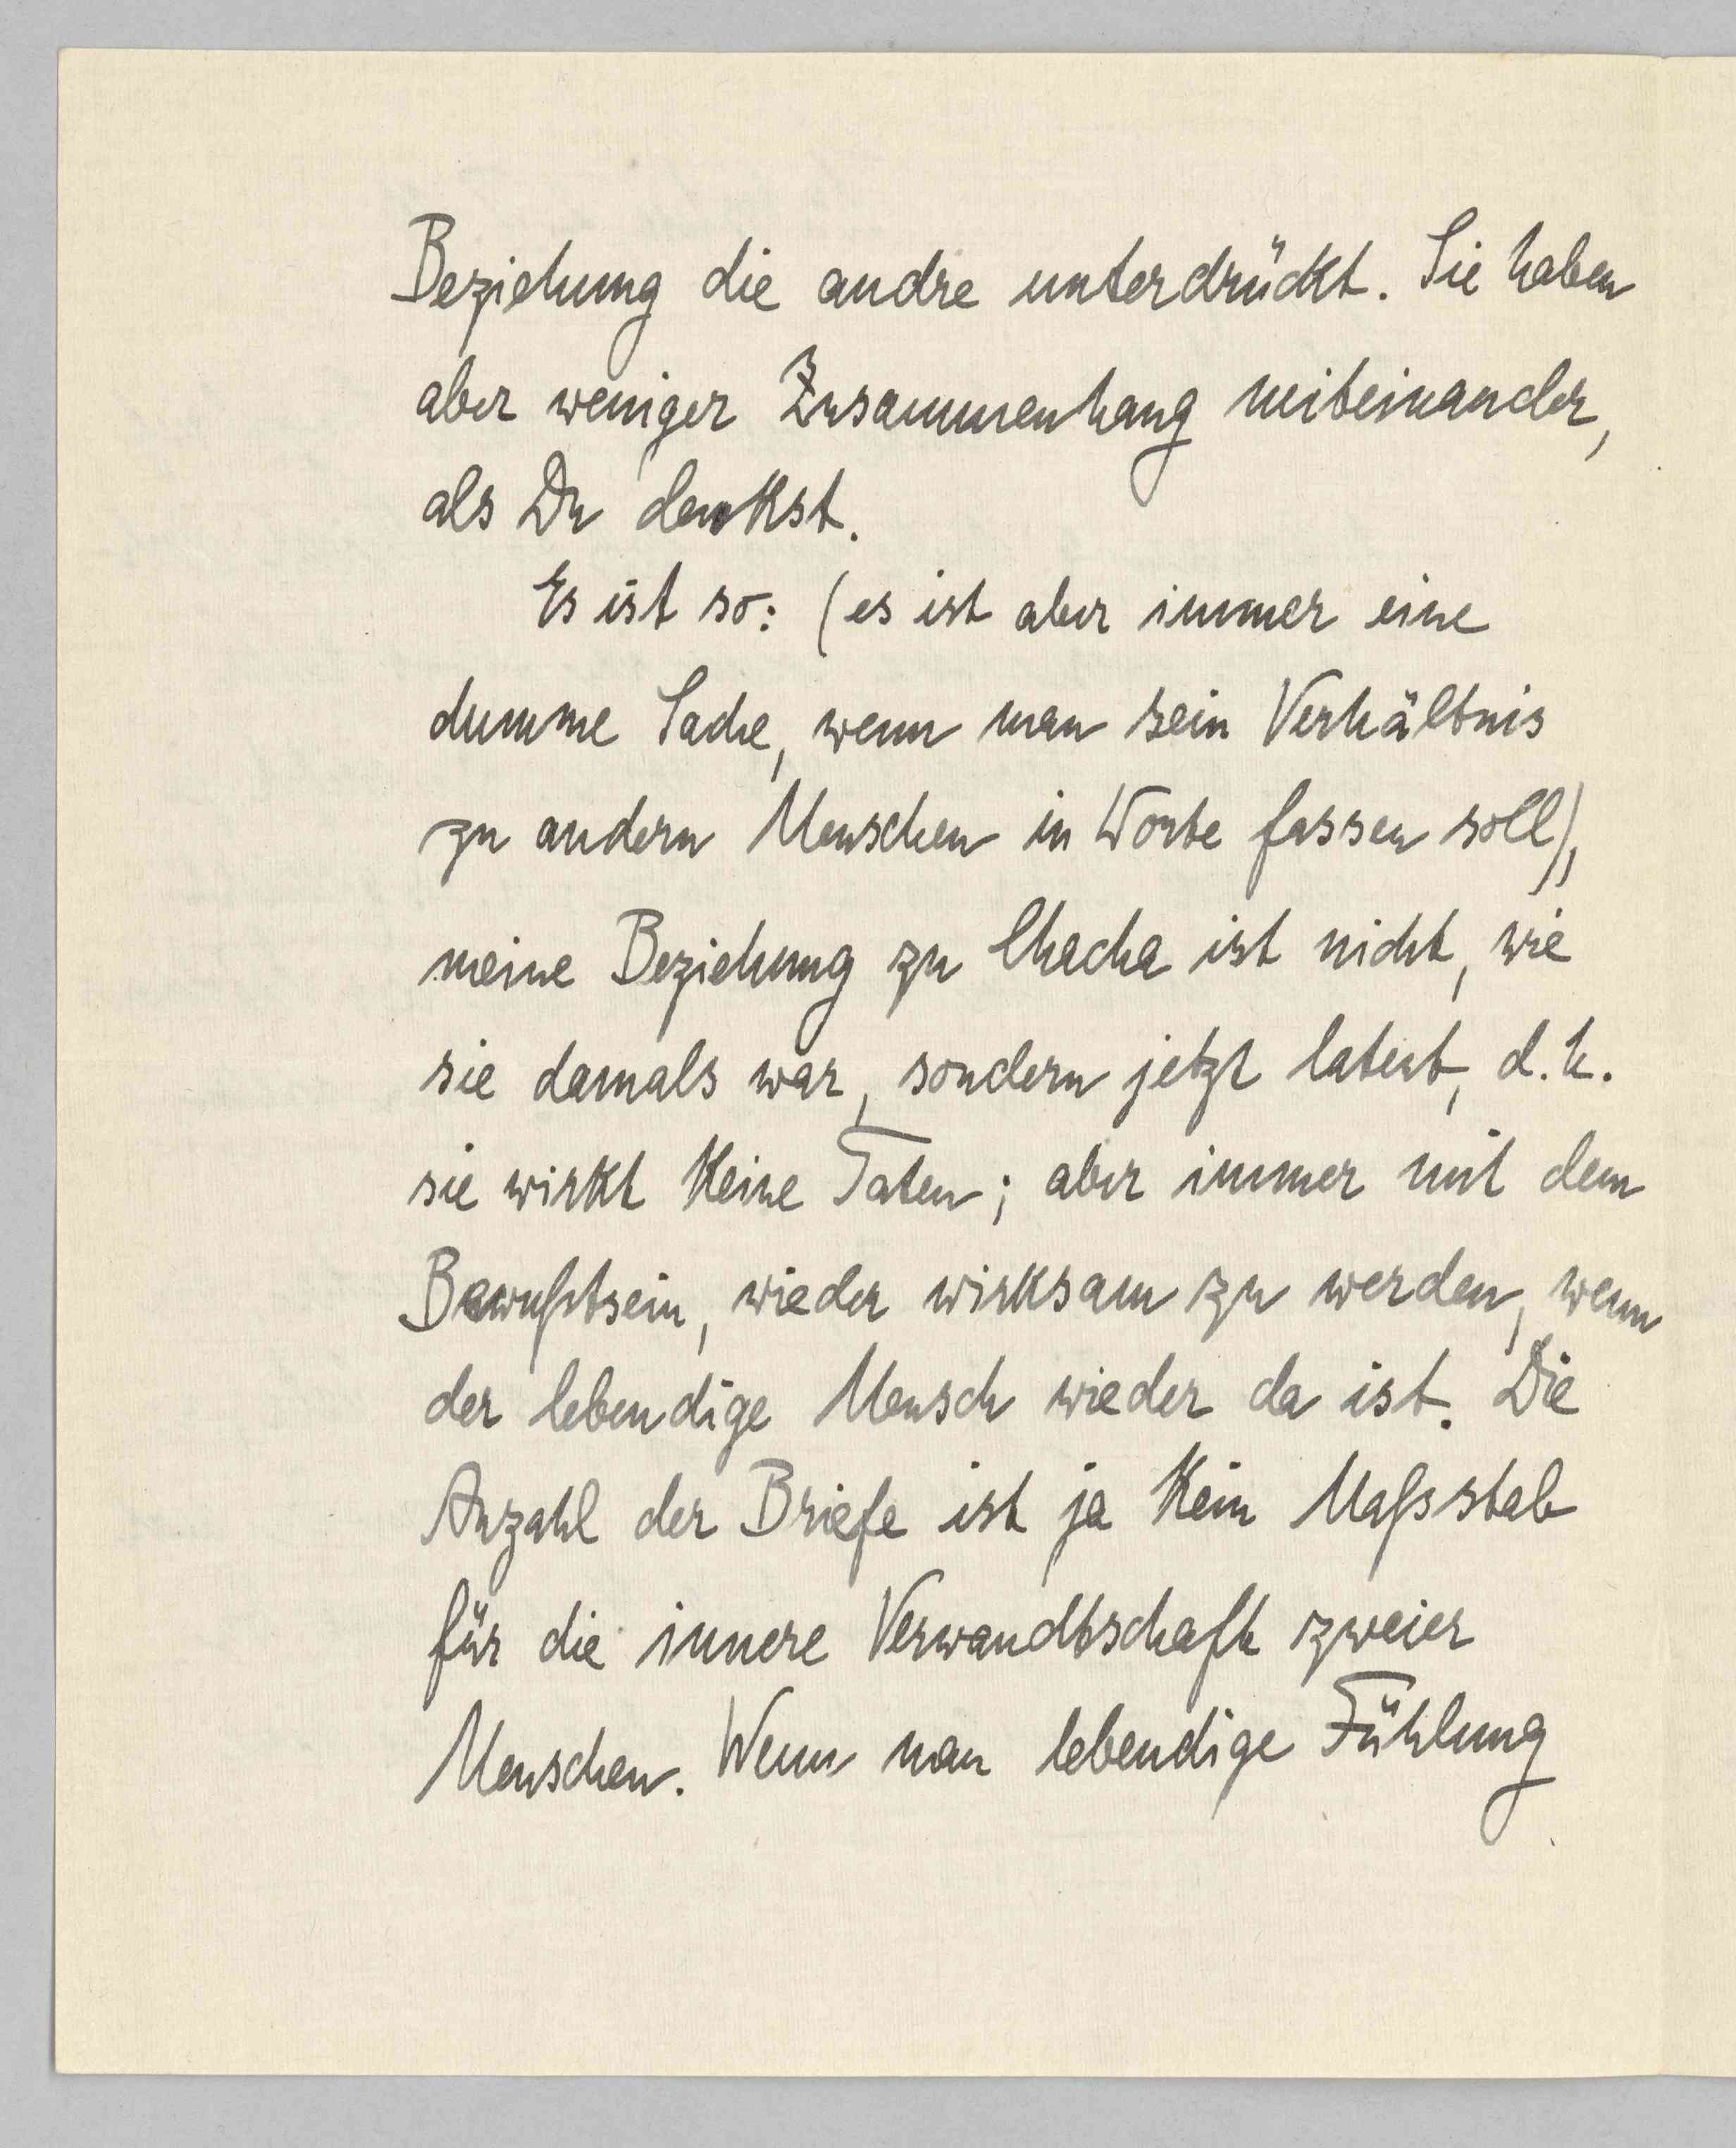 Beziehung die andre unterdrückt. Sie haben
aber weniger Zusammenhang miteinander,
als Du denkst.
Es ist so: (es ist aber immer eine
dumme Sache, wenn man sein Verhältnis
zu andern Menschen in Worte fassen soll),
meine Beziehung zu Chacha ist nicht, wie
sie damals war, sondern jetzt latent, d. h.
sie wirkt keine Taten; aber immer mit dem
Bewußtsein, wieder wirksam zu werden, wenn
der lebendige Mensch wieder da ist. Die
Anzahl der Briefe ist ja kein Maßstab
für die innere Verwandtschaft zweier
Menschen. Wenn man lebendige Fühlung